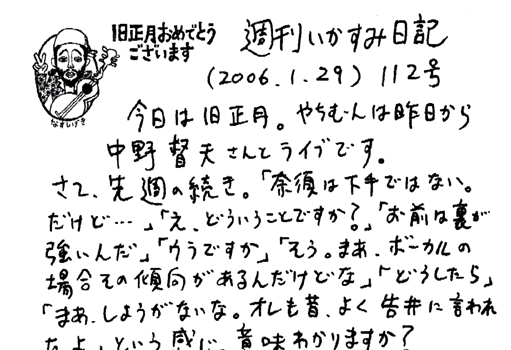 旧正月おめでとう
ございます
週刊いかすみ日記
(2006.1.29) 112号
なすしげき
今日は旧正月。やちむんは昨日から
中野督夫さんとライブです。
さて、先週の続き。「奈須は下手ではない。
だけど…」「え、どういうことですか?」「お前は裏が
強いんだ」「ウラですか」「そう。まあ、ボーカルの
場合その傾向があるんだけどな」「どうしたら」
「まあ、しようがないな。オレも昔、よく告井に言われ
たよ」という感じ。意味わかりますか?